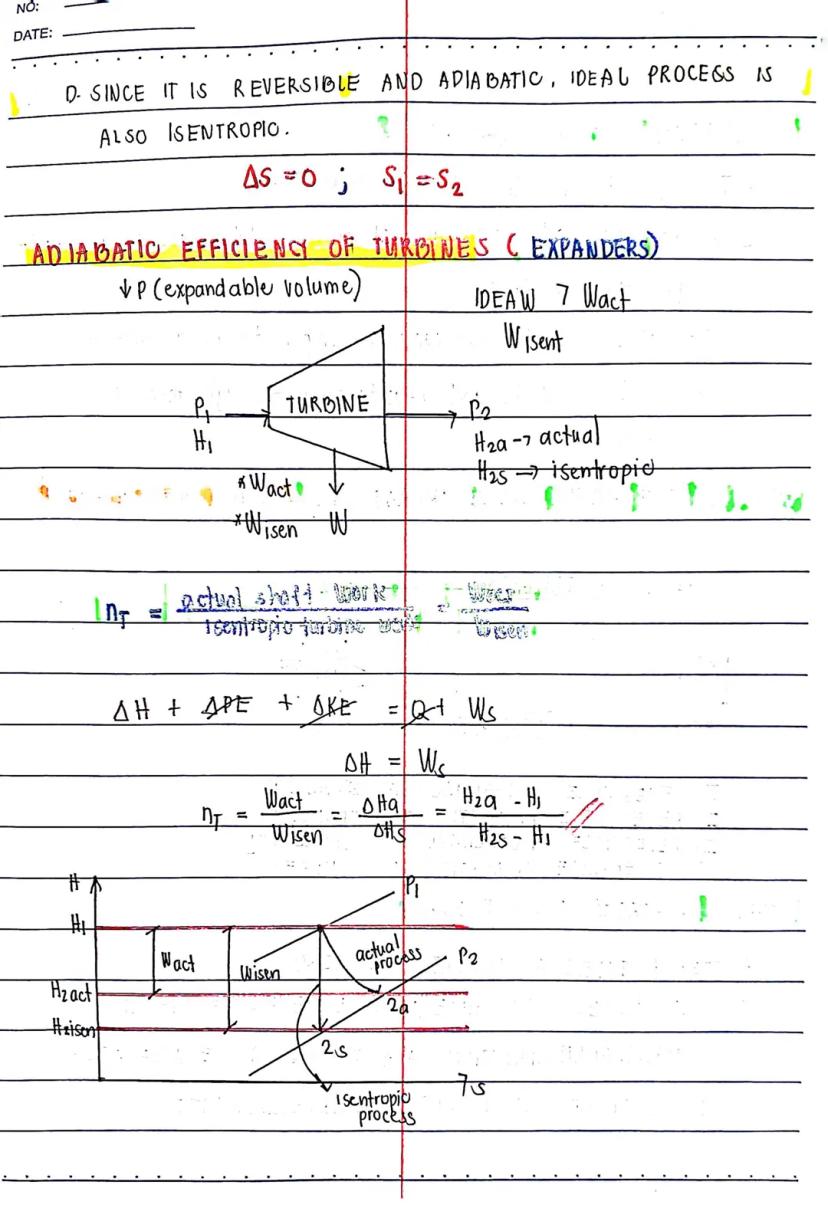 NO:
DATE:
D. SINCE IT IS REVERSIBLE AND ADIABATIC, IDEAL PROCESS IS
ALSO ISENTROPIC.
ΔS = 0 ; S₁ = S₂
ADIABATIC EFFICIENCY OF TURBINES (EXPANDERS)
↓P (expandable volume)
IDEAW > Wact
Wisent
P₁
H₁
TURBINE
P₂
H₂a → actual
H₂s → isentropic
*Wact
*Wisen W
ηT = actual shaft work / isentropic turbine work = Wact / Wisen
ΔH + ΔPE + ΔKE = Q + Ws
ΔH = Ws
ηT = Wact / Wisen = ΔHa / ΔHs = H₂a - H₁ / H₂s - H₁
H
P₁
H₁
Wact
Wisen
actual
process
P₂
H₂act
2a
H₂isen
2s
>s
isentropic
process